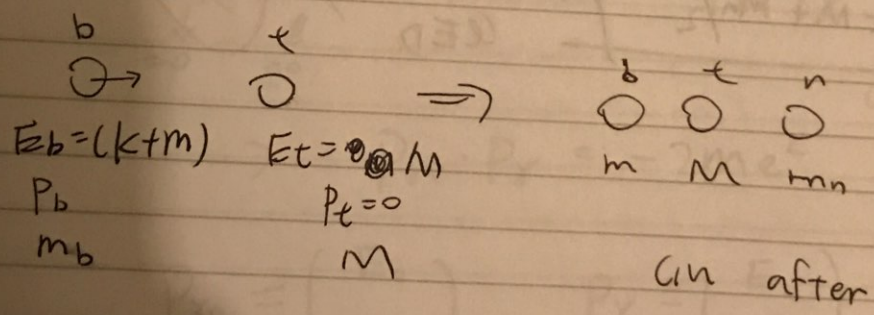 b t
⇒ b t n
Eb=(k+m) Et= M m M mn
Pb Pt=0
mb M
in after